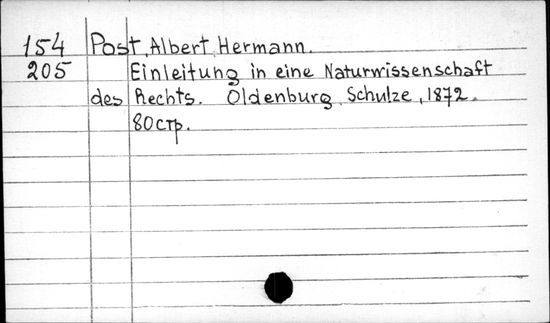 154 Post, Albert Hermann.
205 Einleitung in eine Naturwissenschaft
des Rechts. Oldenburg, Schulze, 1872.
80 стр.